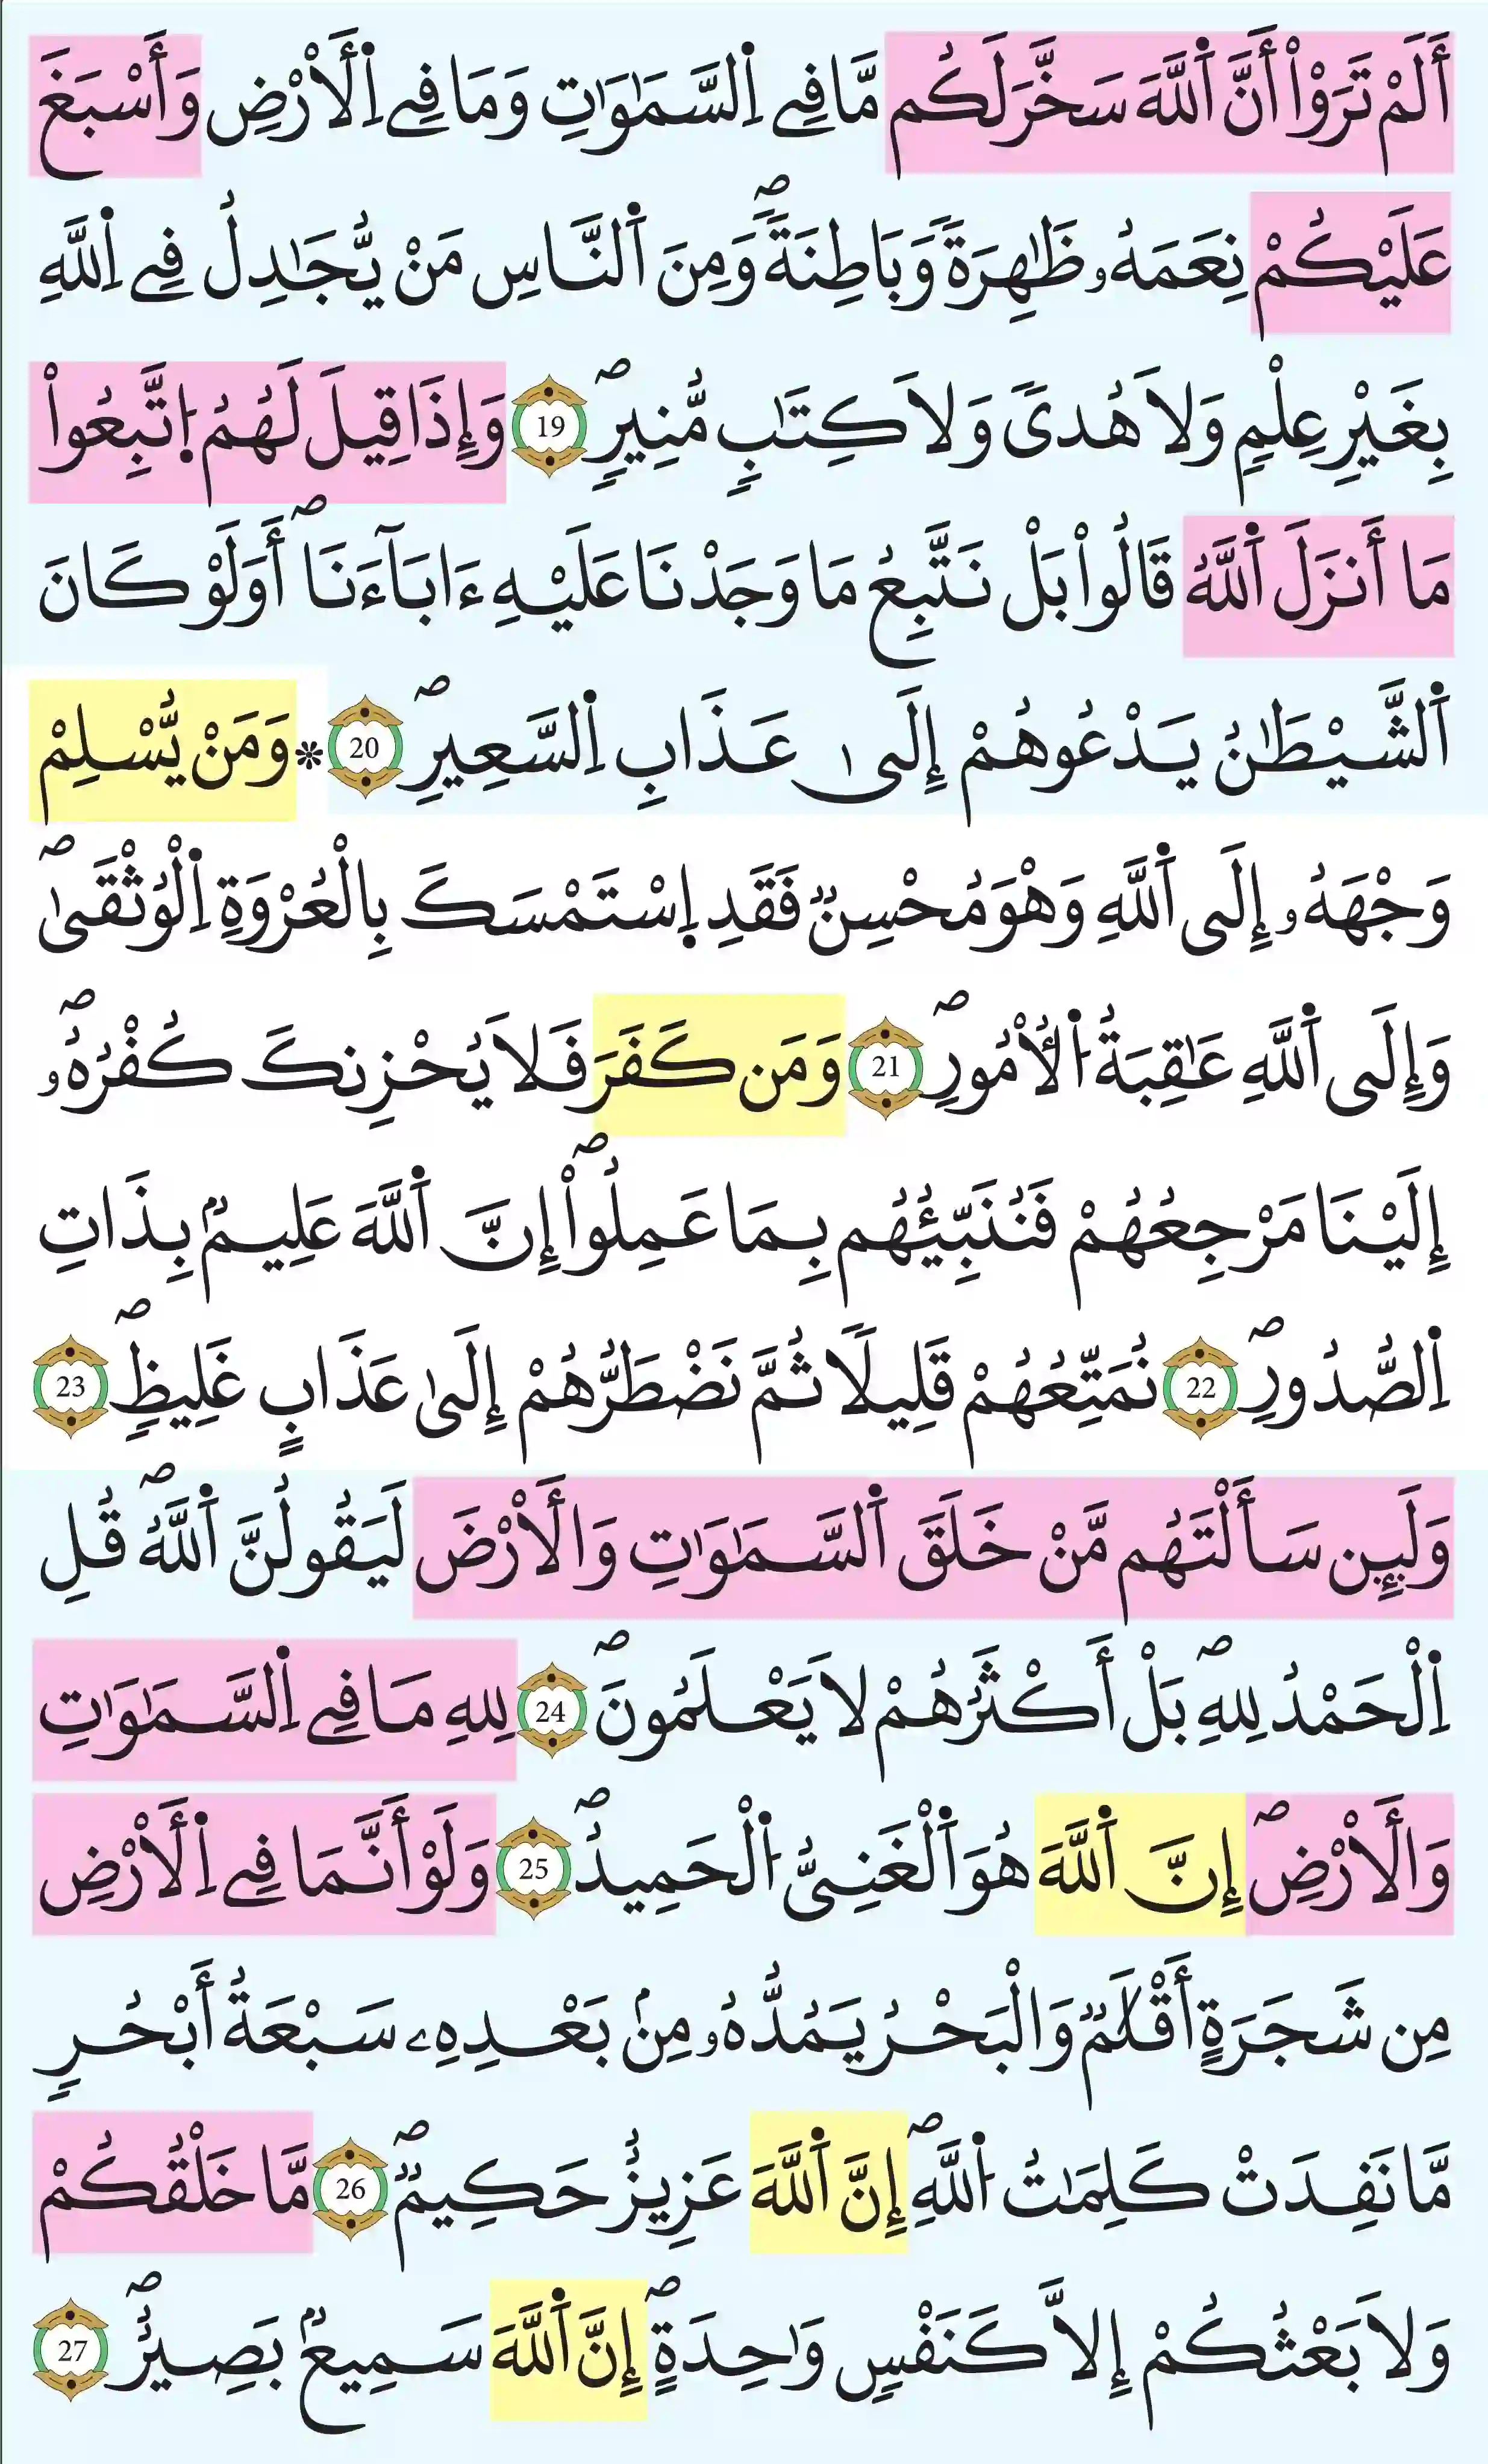 أَلَمْ تَرَوْاْ أَنَّ اَ۬للَّهَ سَخَّرَ لَكُم مَّا فِے اِ۬لسَّمَٰوَٰتِ وَمَا فِے اِ۬لْأَرْضِ وَأَسْبَغَ
عَلَيْكُمْ نِعَمَهُۥ ظَٰهِرَةً وَبَاطِنَةًۖ وَمِنَ اَ۬لنَّاسِ مَنْ يُّجَٰدِلُ فِے اِ۬للَّهِ
بِغَيْرِ عِلْمٍ وَلَا هُدىً وَلَا كِتَٰبٍ مُّنِيرٍۖ 19 وَإِذَا قِيلَ لَهُمُ اُ۪تَّبِعُواْ
مَا أَنزَلَ اَ۬للَّهُ قَالُواْ بَلْ نَتَّبِعُ مَا وَجَدْنَا عَلَيْهِ ءَابَآءَنَاۖ أَوَلَوْ كَانَ
اَ۬لشَّيْطَٰنُ يَدْعُوهُمْ إِلَىٰ عَذَابِ اِ۬لسَّعِيرِۖ 20 * وَمَنْ يُّسْلِمْ
وَجْهَهُۥ إِلَى اَ۬للَّهِ وَهْوَ مُحْسِنٌ فَقَدِ اِ۪سْتَمْسَكَ بِالْعُرْوَةِ اِ۬لْوُثْقَىٰۖ
وَإِلَى اَ۬للَّهِ عَٰقِبَةُ اُ۬لْأُمُورِۖ 21 وَمَن كَفَرَ فَلَا يُحْزِنكَ كُفْرُهُۥۖ
إِلَيْنَا مَرْجِعُهُمْ فَنُنَبِّئُهُم بِمَا عَمِلُواْۖ إِنَّ اَ۬للَّهَ عَلِيمٌۢ بِذَاتِ
اِ۬لصُّدُورِۖ 22 نُمَتِّعُهُمْ قَلِيلًا ثُمَّ نَضْطَرُّهُمْ إِلَىٰ عَذَابٍ غَلِيظٍۖ 23
وَلَئِن سَأَلْتَهُم مَّنْ خَلَقَ اَ۬لسَّمَٰوَٰتِ وَالْأَرْضَ لَيَقُولُنَّ اَ۬للَّهُۖ قُلِ
اِ۬لْحَمْدُ لِلهِۖ بَلْ أَكْثَرُهُمْ لَا يَعْلَمُونَۖ 24 لِلهِ مَا فِے اِ۬لسَّمَٰوَٰتِ
وَالْأَرْضِۖ إِنَّ اَ۬للَّهَ هُوَ اَ۬لْغَنِىُّ اُ۬لْحَمِيدُۖ 25 وَلَوْ أَنَّمَا فِے اِ۬لْأَرْضِ
مِن شَجَرَةٍ أَقْلَٰمٌ وَالْبَحْرُ يَمُدُّهُۥ مِنۢ بَعْدِهِۦ سَبْعَةُ أَبْحُرٍ
مَّا نَفِدَتْ كَلِمَٰتُ اُ۬للَّهِۖ إِنَّ اَ۬للَّهَ عَزِيزٌ حَكِيمٌۖ 26 مَّا خَلْقُكُمْ
وَلَا بَعْثُكُمْ إِلَّا كَنَفْسٍ وَٰحِدَةٍۖ إِنَّ اَ۬للَّهَ سَمِيعٌۢ بَصِيرٌۖ 27